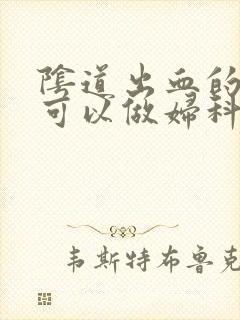 陰道出血的
可以做婦科
韦斯特布鲁克